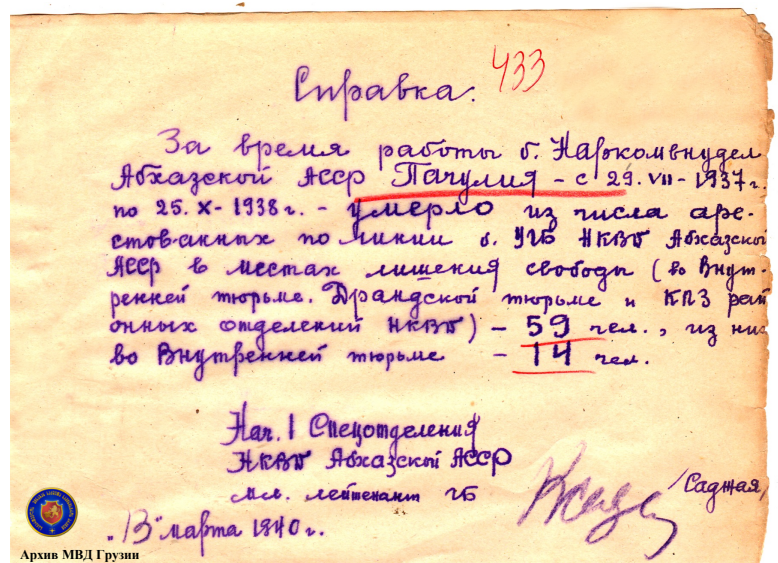 433
Справка.
За время работы б. Наркомвнудел
Абхазской АССР Пачулия - с 29. VII - 1937 г.
по 25. X - 1938 г. - умерло из числа аре-
стованных по линии б. УГБ НКВД Абхазской
АССР в местах лишения свободы (во Внут-
ренней тюрьме, Драндской тюрьме и КПЗ рай
онных отделений НКВД) - 59 чел., из них
во Внутренней тюрьме - 14 чел.
Нач. 1 Спецотделения
НКВД Абхазской АССР
мл. лейтенант ГБ
/Саджая/
"13" марта 1940 г.
Архив МВД Грузии